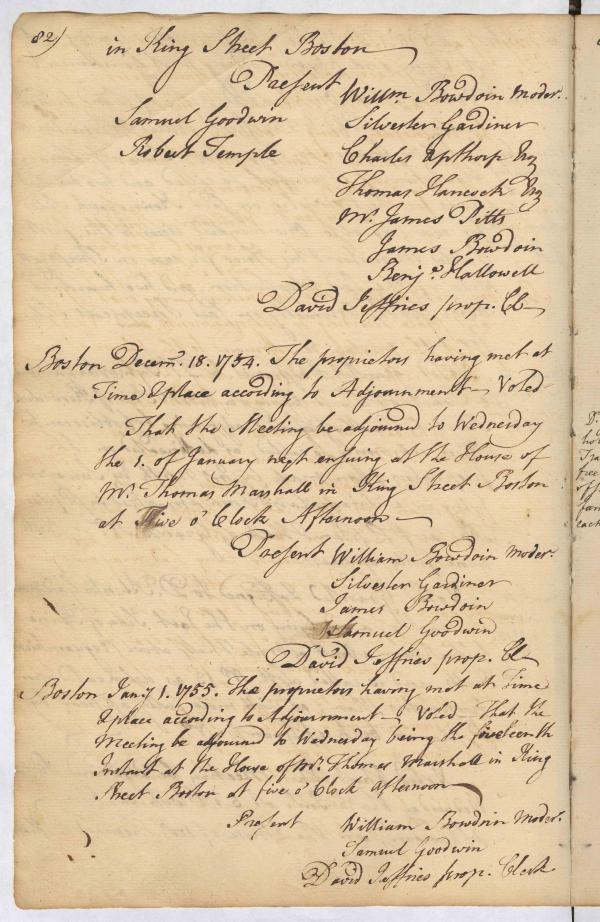 82)
in King Street Boston
Present Willm. Bowdoin Moder.
Samuel Goodwin Silvester Gardiner
Robert Temple Charles Apthorp Esq
Thomas Hancock Esq
Mr. James Pitts
James Bowdoin
Benja. Hallowell
David Jeffries prop. Cl
Boston Decemr. 18. 1754. The proprietors having met at
Time & place according to Adjournment Voted
That the Meeting be adjourned to Wednesday
the 1. of January next ensuing at the House of
Mr. Thomas Marshall in King Street Boston
at Five o'Clock Afternoon
Present William Bowdoin Moder.
Silvester Gardiner
James Bowdoin
Samuel Goodwin
David Jeffries prop. Cl
Boston Jany 1. 1755. The proprietors having met at Time
& place according to Adjournment Voted That the
Meeting be adjourned to Wednesday being the fiveteenth
Instant at the House of Mr. Thomas Marshall in King
Street Boston at five o'Clock afternoon
Present William Bowdoin Moder.
Samuel Goodwin
David Jeffries prop. Clerk